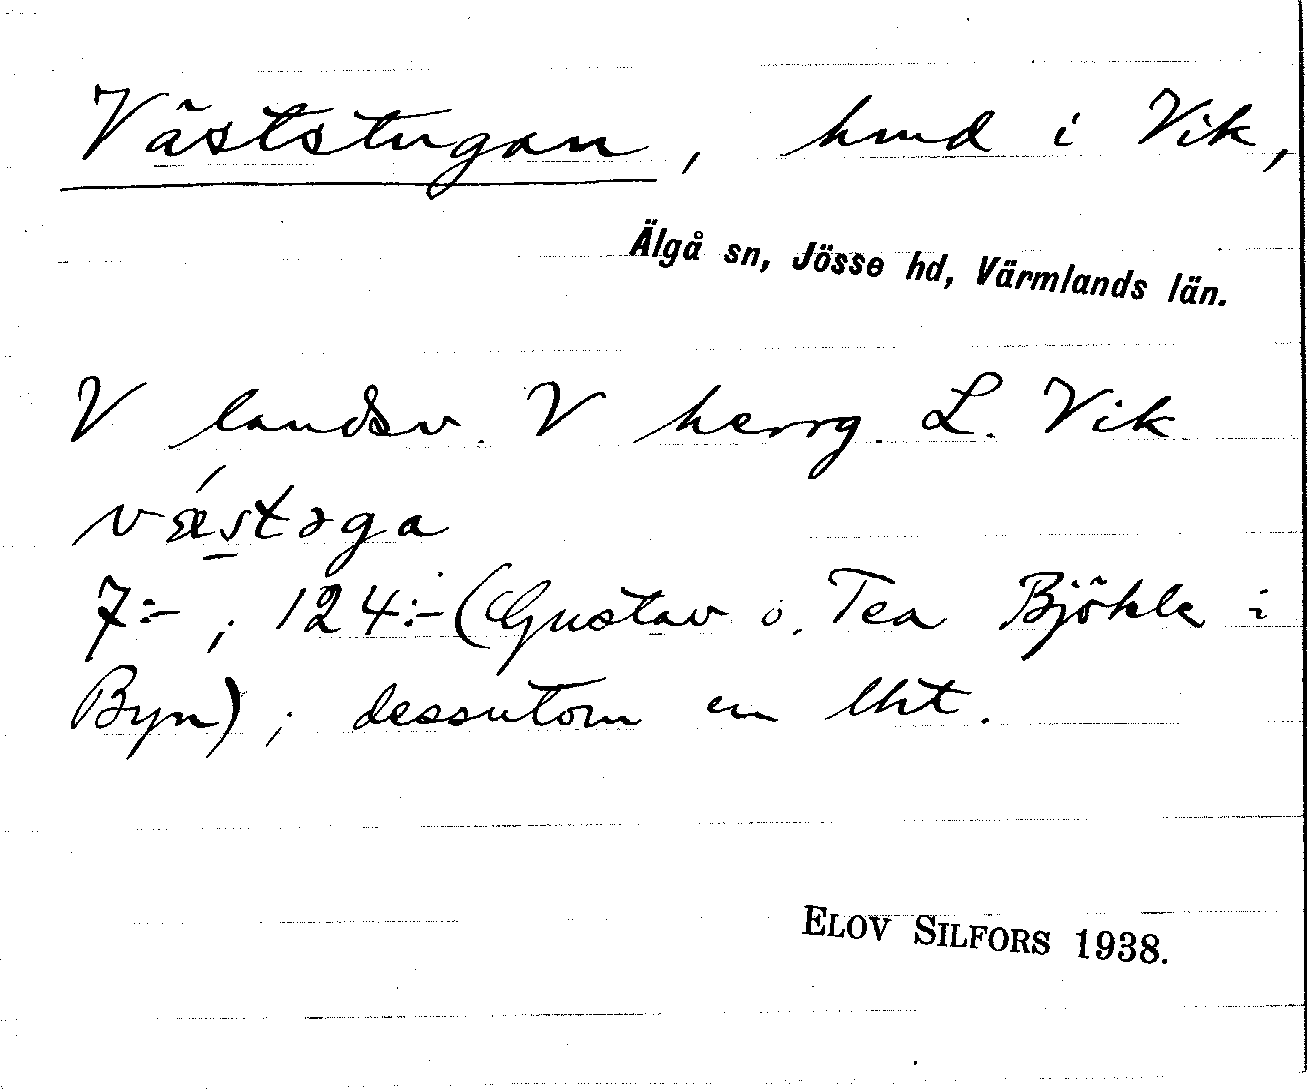 Väststugan, hmd i Vik,
Älgå sn, Jösse hd, Värmlands län.
V landsv. V herrg. L. Vik
vǽstɔga
7:- ; 124:- (Gustav o. Tea Björkle i
Byn) ; dessutom en lht.
ELOV SILFORS 1938.